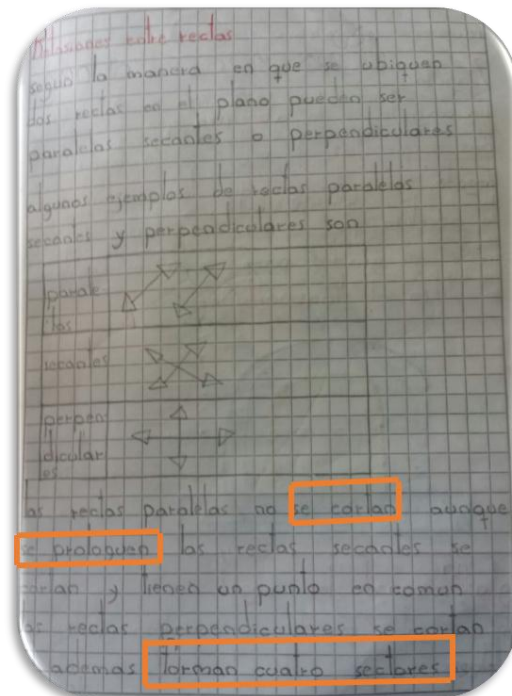 Relasiones entre rectas
según la manera en que se ubiquen
dos rectas en el plano pueden ser
paralelas secantes o perpendiculares
algunos ejemplos de rectas paralelas
secantes y perpendiculares son
parale
las
secantes
perpen
dicular
es
as rectas paralelas no se cortan aunque
se prologuen las rectas secantes se
cortan y tienen un punto en comun
as rectas perpendiculares se cortan
ademas forman cuatro sectores